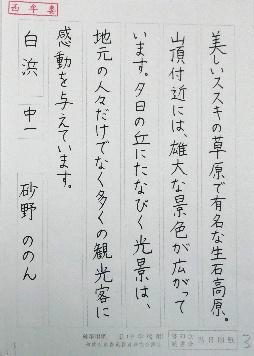 美しいススキの草原で有名な生石高原。
山頂付近には、雄大な景色が広がって
います。夕日の丘にたなびく光景は、
地元の人々だけでなく多くの観光客に
感動を与えています。
白浜 中一 砂野 ののん
西牟婁
3